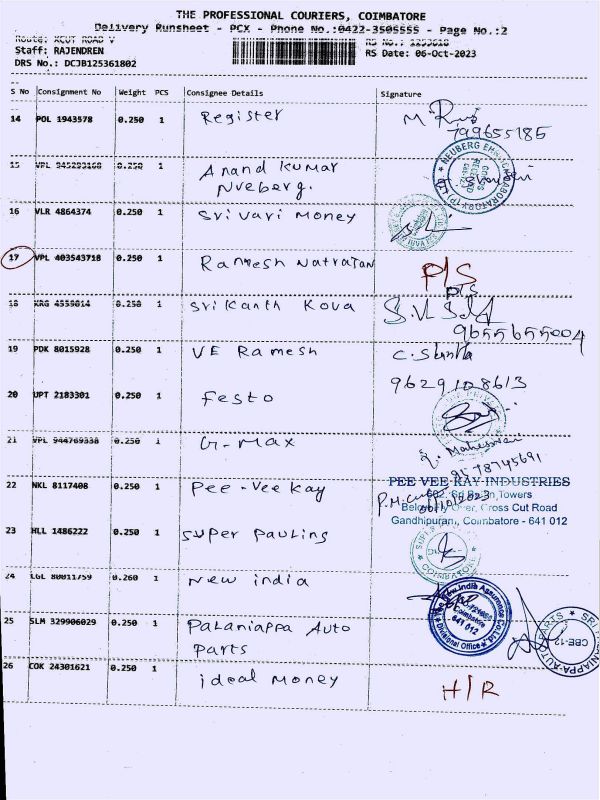 THE PROFESSIONAL COURIERS, COIMBATORE
Delivery Runsheet - PCX - Phone No.:0422-3505555 - Page No.:2
Route: XCUT ROAD V
RS No.: 1253618
Staff: RAJENDREN
RS Date: 06-Oct-2023
DRS No.: DCJB125361802
S No Consignment No Weight PCS Consignee Details Signature
14 POL 1943578 0.250 1 Register
799655185
15 VPL 0.250 1 Anand Kumar
Nveberg.
NEUBERG LABORATORY (P)
16 VLR 4864374 0.250 1 Srivari Money
17 VPL 403543718 0.250 1 Ramesh Natrajan P/S
P/S
18 KRG 4559014 0.250 1 Srikanth Kova
9655655004
19 PDK 8015928 0.250 1 VE Ramesh
9629108613
20 UPT 2183301 0.250 1 Festo
21 VPL 944769338 0.250 1 G-Max Maheswari
78745691
22 NKL 8117408 0.250 1 Pee-Vee Kay
PEE VEE KAY INDUSTRIES
Towers
Over, Cross Cut Road
Gandhipuram, Coimbatore - 641 012
23 HLL 1486222 0.250 1 Super Paulins
COIMBATORE
24 LGL 80011759 0.260 1 New india
New India Assurance Co.Ltd
Coimbatore
641 012
Divisional Office
25 SLM 329906029 0.250 1 Palaniappa Auto
Parts
CBE-12
26 COK 24301621 0.250 1 ideal money H/R